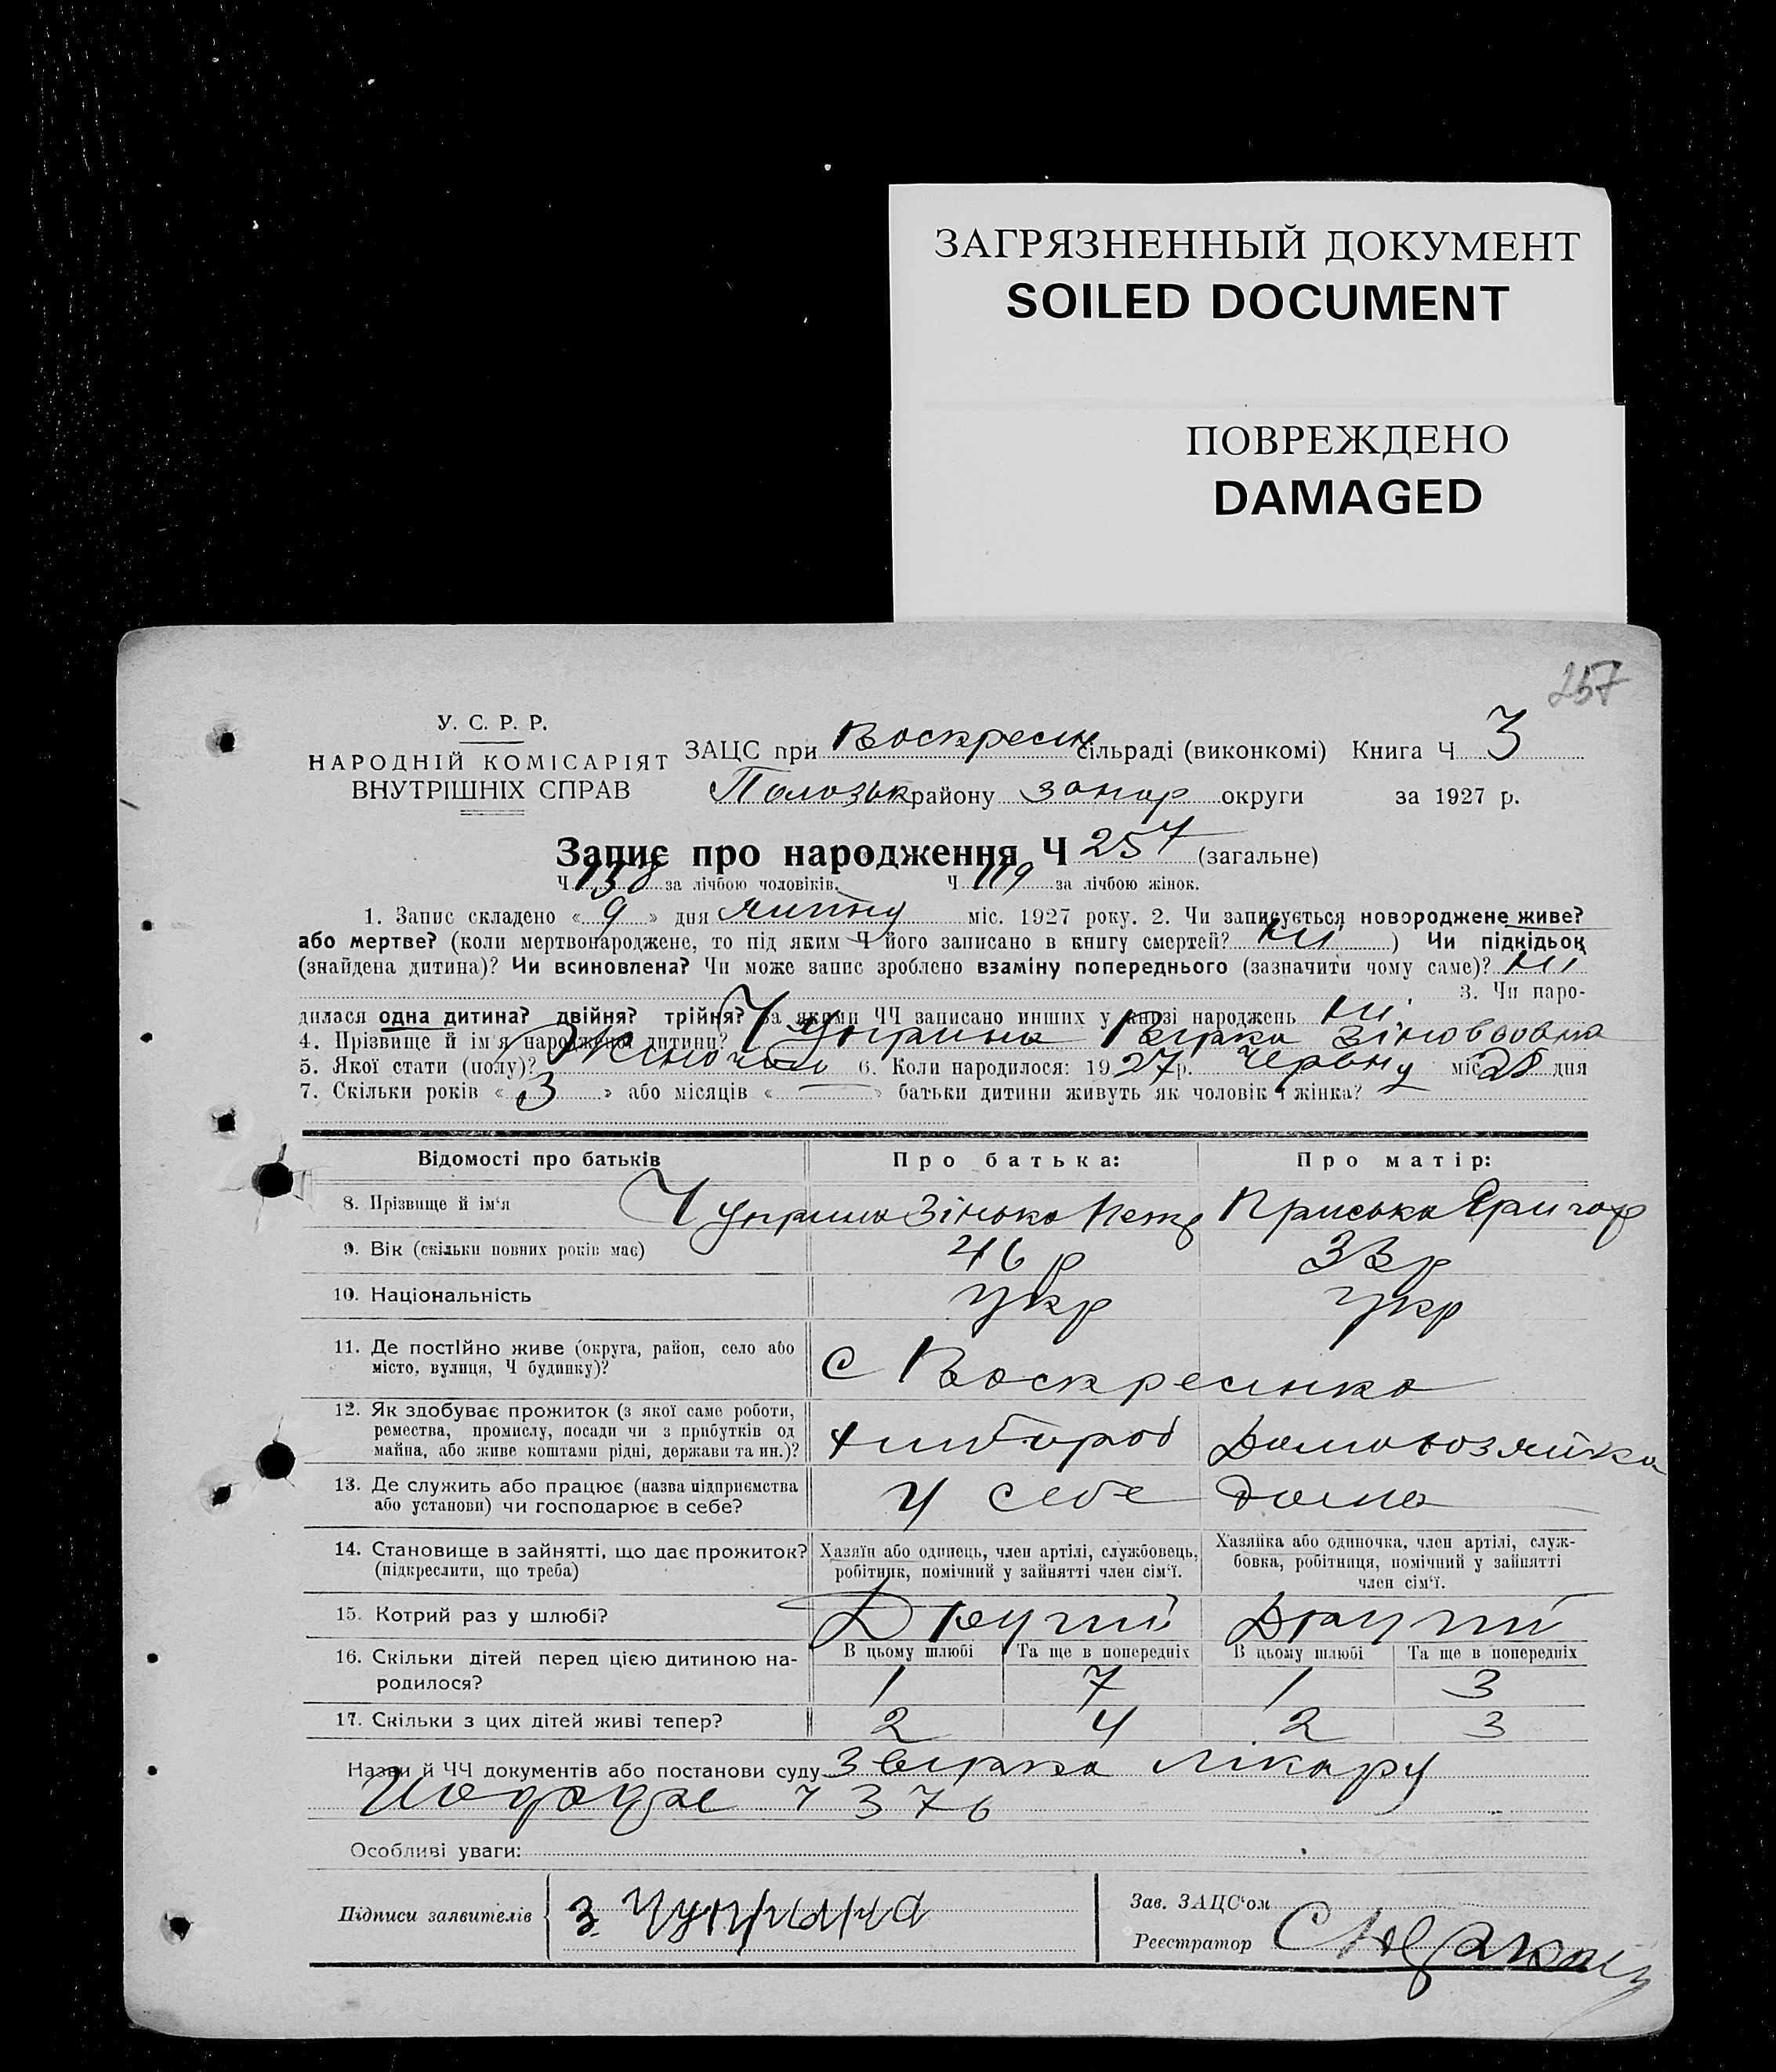 ЗАГРЯЗНЕННЫЙ ДОКУМЕНТ
SOILED DOCUMENT
ПОВРЕЖДЕНО
DAMAGED
257
У. С. Р. Р.
НАРОДНІЙ КОМІСАРІЯТ
ВНУТРІШНІХ СПРАВ
ЗАЦС при Воскресен сільраді (виконкомі) Книга Ч 3
Полозьк району запор округи за 1927 р.
Запис про народження Ч 257 (загальне)
Ч 138 за лічбою чоловіків. Ч 119 за лічбою жінок.
1. Запис складено « 9 » дня липня міс. 1927 року. 2. Чи записується новороджене живе?
або мертве? (коли мертвонароджене, то під яким Ч його записано в книгу смертей? ні ) Чи підкідьок
(знайдена дитина)? Чи всиновлена? Чи може запис зроблено взаміну попереднього (зазначити чому саме)? ні
3. Чи наро-
дилася одна дитина? двійня? трійня? За якими ЧЧ записано инших у книзі народжень ні
4. Прізвище й ім'я народженої дитини? Чуприна Вірка Зіновьовна
5. Якої стати (полу)? Жіночої 6. Коли народилося: 1927 р. Червня міс 28 дня
7. Скільки років « 3 » або місяців « — » батьки дитини живуть як чоловік і жінка?
Відомості про батьків Про батька: Про матір:
8. Прізвище й ім'я Чуприна Зінько Петр Приська Григор
9. Вік (скільки повних років має) 46 р 33 р
10. Національність укр укр
11. Де постійно живе (округа, район, село або
місто, вулиця, Ч будинку)? С Воскресенка
12. Як здобуває прожиток (з якої саме роботи,
ремества, промислу, посади чи з прибутків од
майна, або живе коштами рідні, держави та ин.)? хлибороб Домовозяйка
13. Де служить або працює (назва підприємства
або установи) чи господарює в себе? у себе дома
14. Становище в зайнятті, що дає прожиток?
(підкреслити, що треба)
Хазяїн або одинець, член артілі, службовець,
робітник, помічний у зайнятті член сім'ї.
Хазяйка або одиночка, член артілі, служ-
бовка, робітниця, помічний у зайнятті
член сім'ї.
15. Котрий раз у шлюбі? Другий Другий
В цьому шлюбі Та ще в попередніх В цьому шлюбі Та ще в попередніх
16. Скільки дітей перед цією дитиною на-
родилося? 1 7 1 3
17. Скільки з цих дітей живі тепер? 2 4 2 3
Назви й ЧЧ документів або постанови суду Звірка лікару
ч 376
Особливі уваги:
Підписи заявителів З Чуприна
Зав. ЗАЦС'ом
Реєстратор